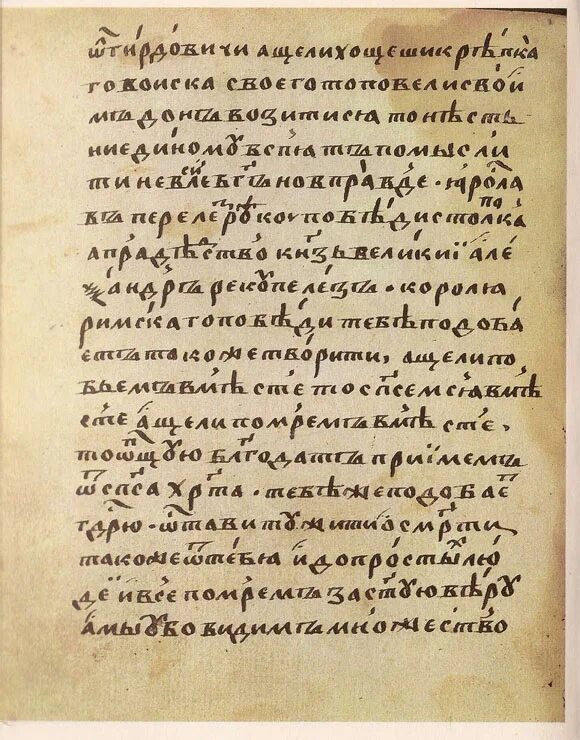 ѿгирдовичи а щелихощешикрѣпка
говоиска своего топовелисвои
мъ донъ возитисѧ то нѣсть
ниединомꙋ вспѧть помысли
ти невелевгл҃ъ но в правде · ꙗрола
въ перелегъ рꙋкоу поведи столка
а прадѣдство кн҃зь великиї але
ѯандръ рекꙋ пелезъ · королѧ
римскаго повѣди тебѣ подоба
етъ такоже творити, ащели по
бьемъ вмѣсте то сп҃семсѧ вмѣ
сте ащели помремъ вмѣсте,
то ѡбщꙋю блг҃одать приїмемъ
ѿ сп҃са хр҃та · тебѣ же подобает
г҃дрю · ѿтавитꙋ жити ѡ смр҃ти
такоже ѿ тебѧ и до простых лю
деї и все помремъ за ст҃ꙋю вѣрꙋ
а мы ꙋбо видимъ множество